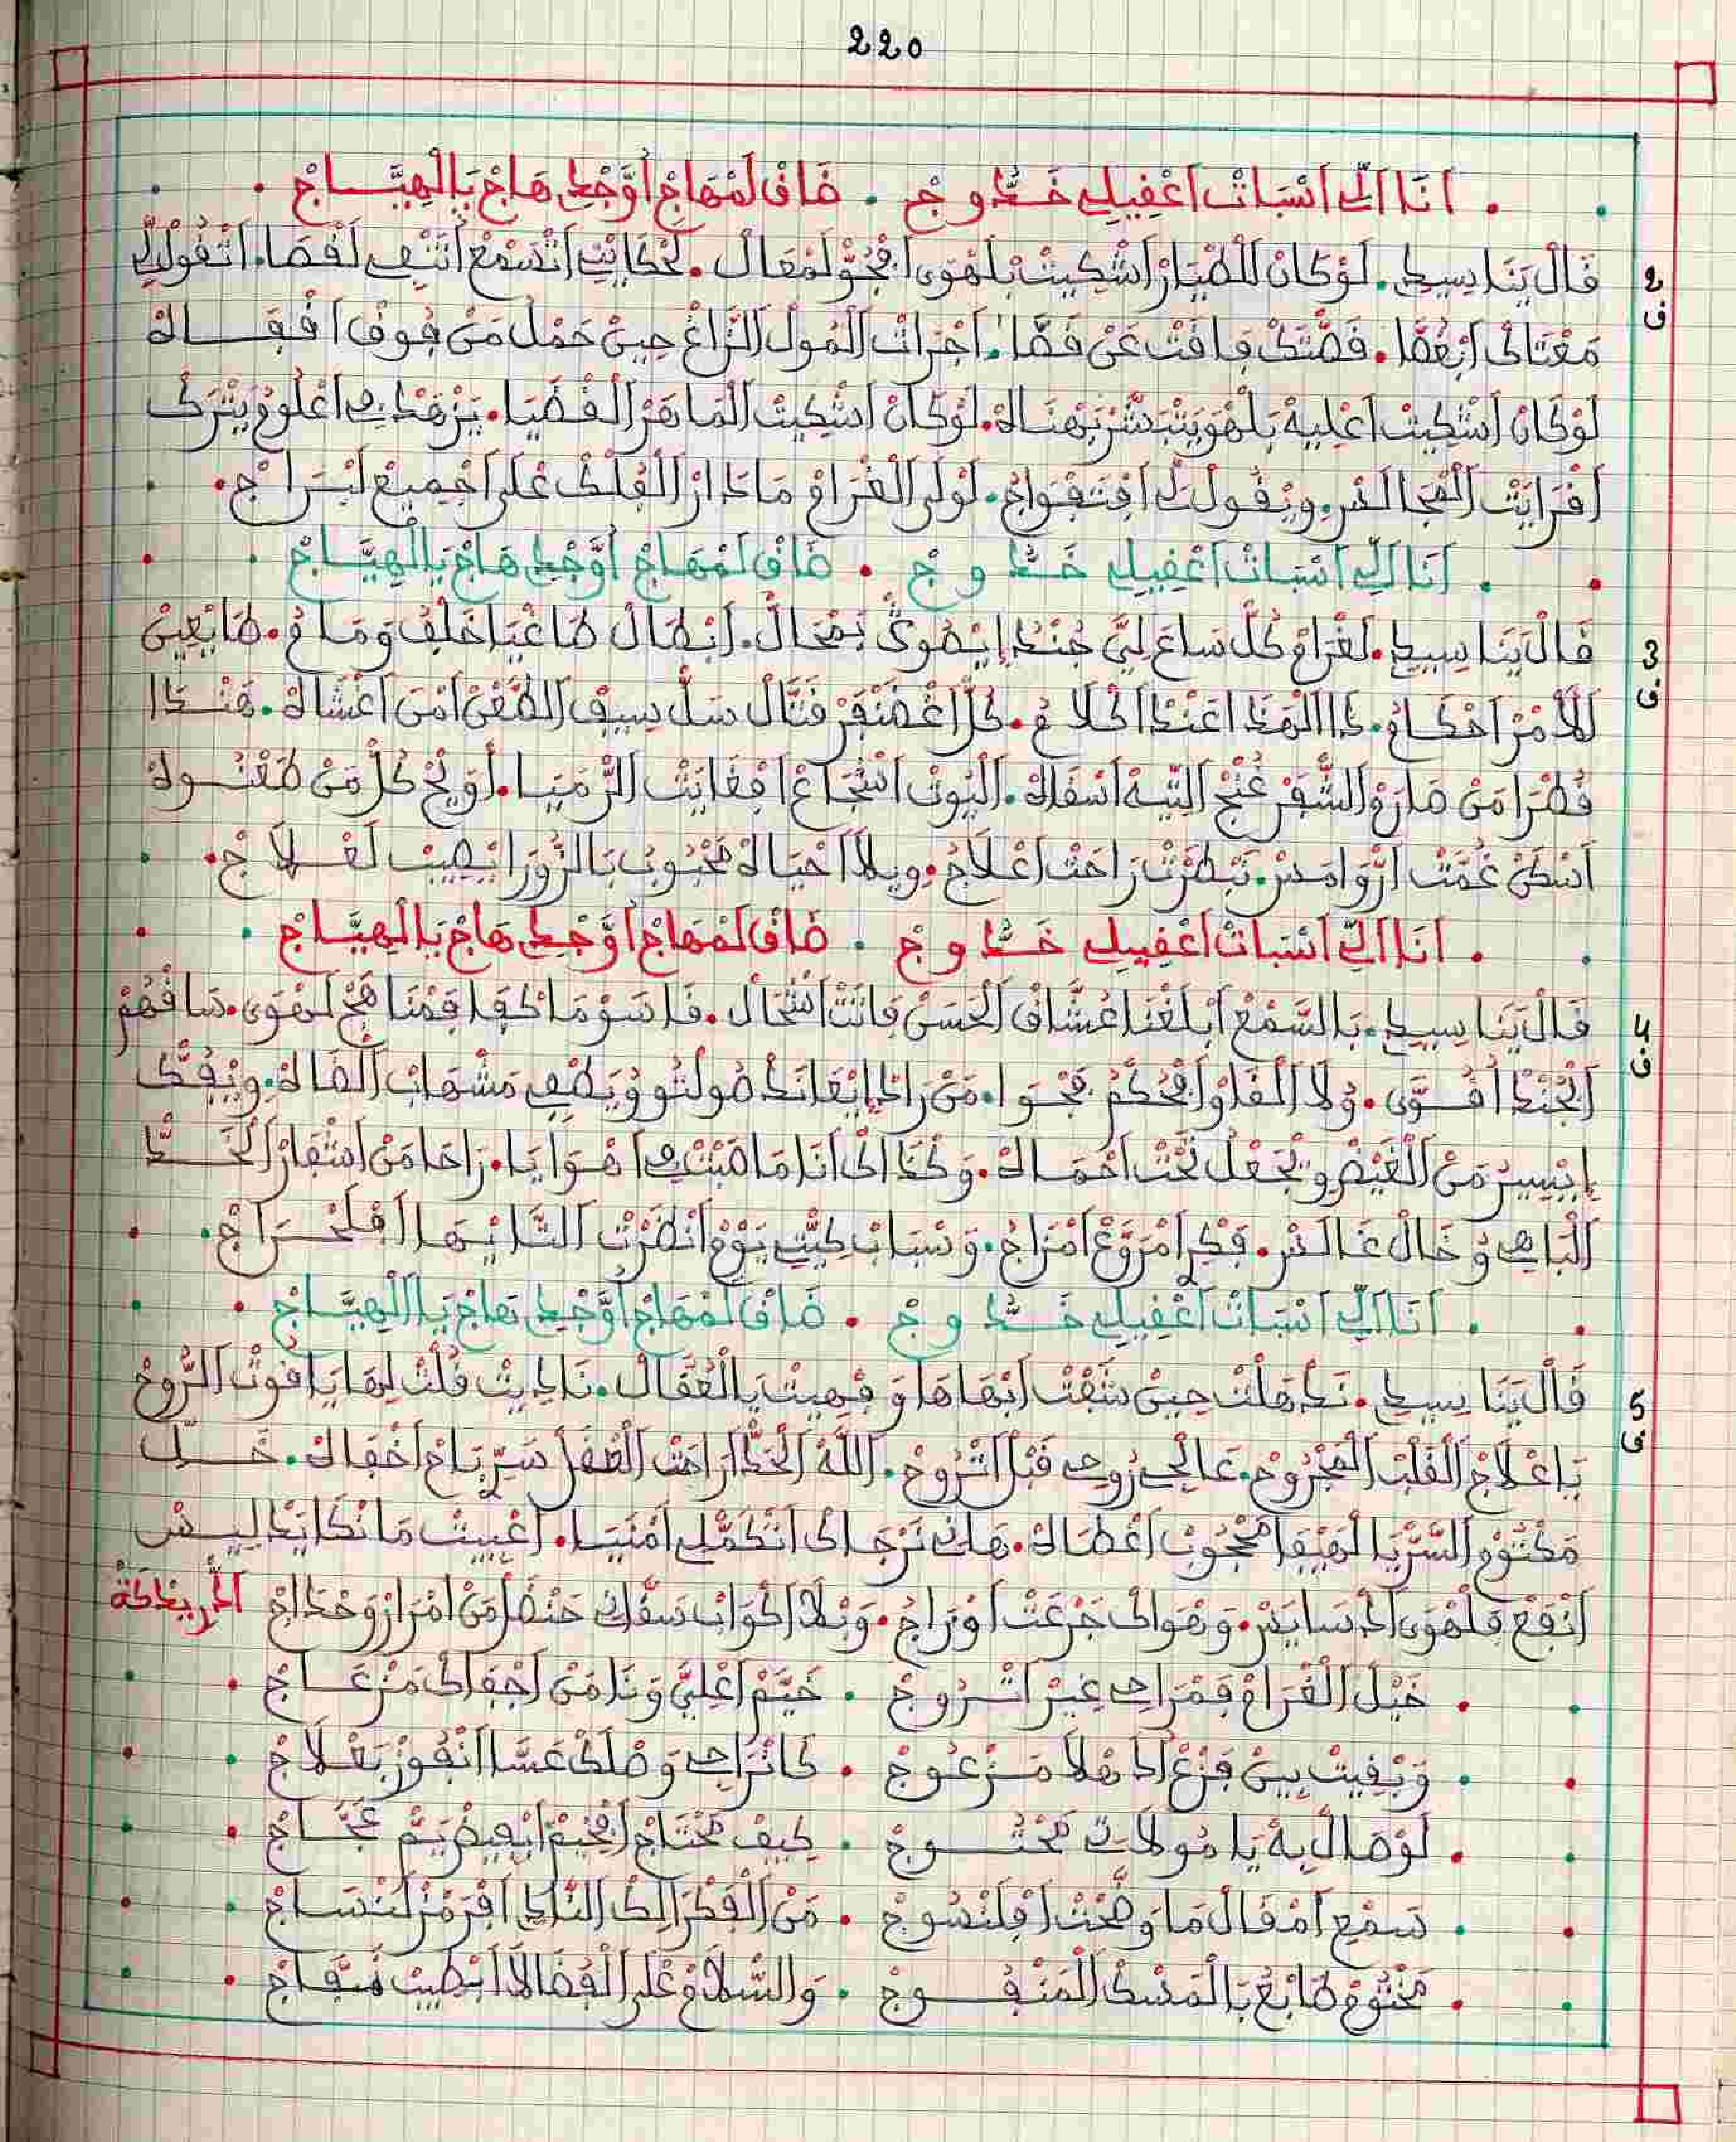 220
أنا الي اسبات اعقيلي خدوج . ضاق لمهاج أوجدي هاج بالهياج
2 ف قال ينا سيدي . لوكان للطيار اشكيت بلهوى افجو لمعال . لحكايتي اتسمع اتتقي لقصا . اتقول لي
معتاك ابغصا . قصتك فاقت عن قصا . اجرات المول الزاغ حين حمل من فوق اقفاه
لوكان اشكيت اعليه بلهو يتبشر بهناه . لوكان اشكيت الماهر القضيا . يزهد في اعلومو يترك
اقرايت المجالس . ويقول لي افتفواج . لولى الغرام مادار الفلك على اجميع لبراج
أنا الي اسبات اعقيلي خدوج . ضاق لمهاج أوجدي هاج بالهياج
3 ف قال ينا سيدي . لغرام كل ساع لي جند إيصوك بمحال . ابطال طاغيا خلف ومام . طايعين
للأمر احكام . دا الهدا اعندا كلام . كل اغضنفر قتال سل سيف الطعن امن اغشاه . هندا
قطرا من صارم الشفر غنج التيه اسقاه . اليوت اشجاع افغايت الرميا . أويح كل من طعنوه
اسكن غمت ارواميس . تبطرت راحت اعلاج . ويلا احياه محبوب بالزورا يصيب لعلاج
أنا الي اسبات اعقيلي خدوج . ضاق لمهاج أوجدي هاج بالهياج
4 ف قال ينا سيدي . بالسمع ابلغنا عشاق الحسن فانت اشحال . قاسو ما كفا قمنا هج لهوى . سافهم
الجند اقوى . ولا القاو افحكم نجوا . من راد إيعاند صولتو ويطفي مشهاب الضاه . ويفك
إيسير من الغيض ويجعل تحت احماه . وكذاك أنا ماصبت في اهوايا . راحا من اشفار الخد
الباهي وخال غالس . فكر امروع امزاج . وسباب كيتي يوم انظرت التايها افلحراج
أنا الي اسبات اعقيلي خدوج . ضاق لمهاج أوجدي هاج بالهياج
5 ف قال ينا سيدي . ندهلت حين شفت ابهاها وفهيت بالعقال . ناديت قلت لها ياقوت الروح
ياعلاج القلب المجروح . عالجي روحي قبل اتروح . الله الخد اراحت الطفل سر باح اخفاه . خل
مكتوم السر يا لهيفا محجوب اغطاه . هاني نرجاك اتكملي امنيا . اعييت مانكايد ليس
انفع فلهوى ادسايس . وهواك جرعت اوراج . وبلا اكواب سقاني حنضل من امرارو حداج الحربة
خيل الغرام فمراحي غير اتروج . خيم اعلي ونا من اجفاك مزعاج
وبقيت بين فزع ادهلا مزعوج . كانراجي وصلك عسا انفوز بعلاج
لوصال به يا مولاتي محتوج . كيف محتاج افخيم ابفيض يم عجاج
سمع امقال ما وضحت افلنسوج . من الفكر اليك النادي افرمز لنساج
مختوم طابع بالمسك المنفوج . والسلام على الفضالا ابطيب نفاج